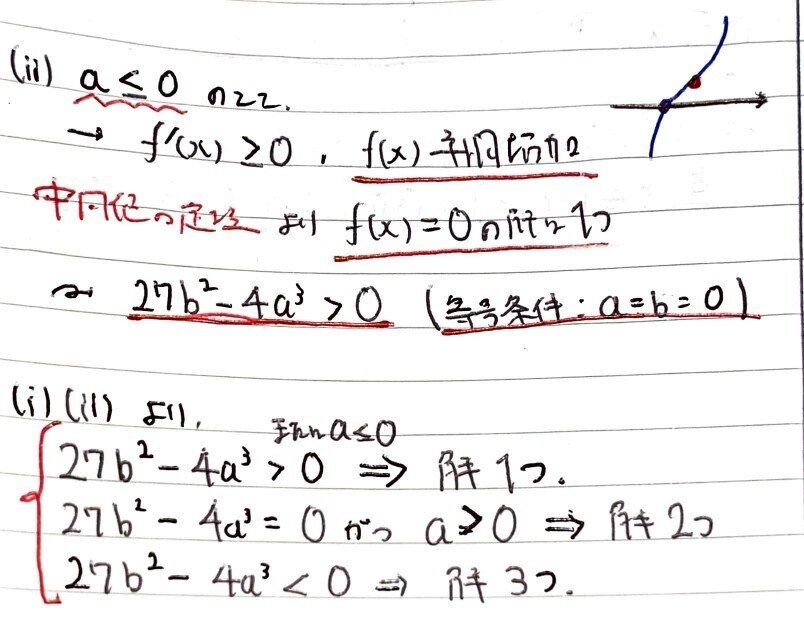 (ii) a ≤ 0 のとき.
→ f'(x) ≥ 0 , f(x) 単調増加
中間値の定理 より f(x) = 0 の解は 1つ
27b² - 4a³ > 0 (等号条件 : a = b = 0)
(i) (ii) より,
または a ≤ 0
27b² - 4a³ > 0 ⇒ 解 1つ.
27b² - 4a³ = 0 かつ a > 0 ⇒ 解 2つ
27b² - 4a³ < 0 ⇒ 解 3つ.